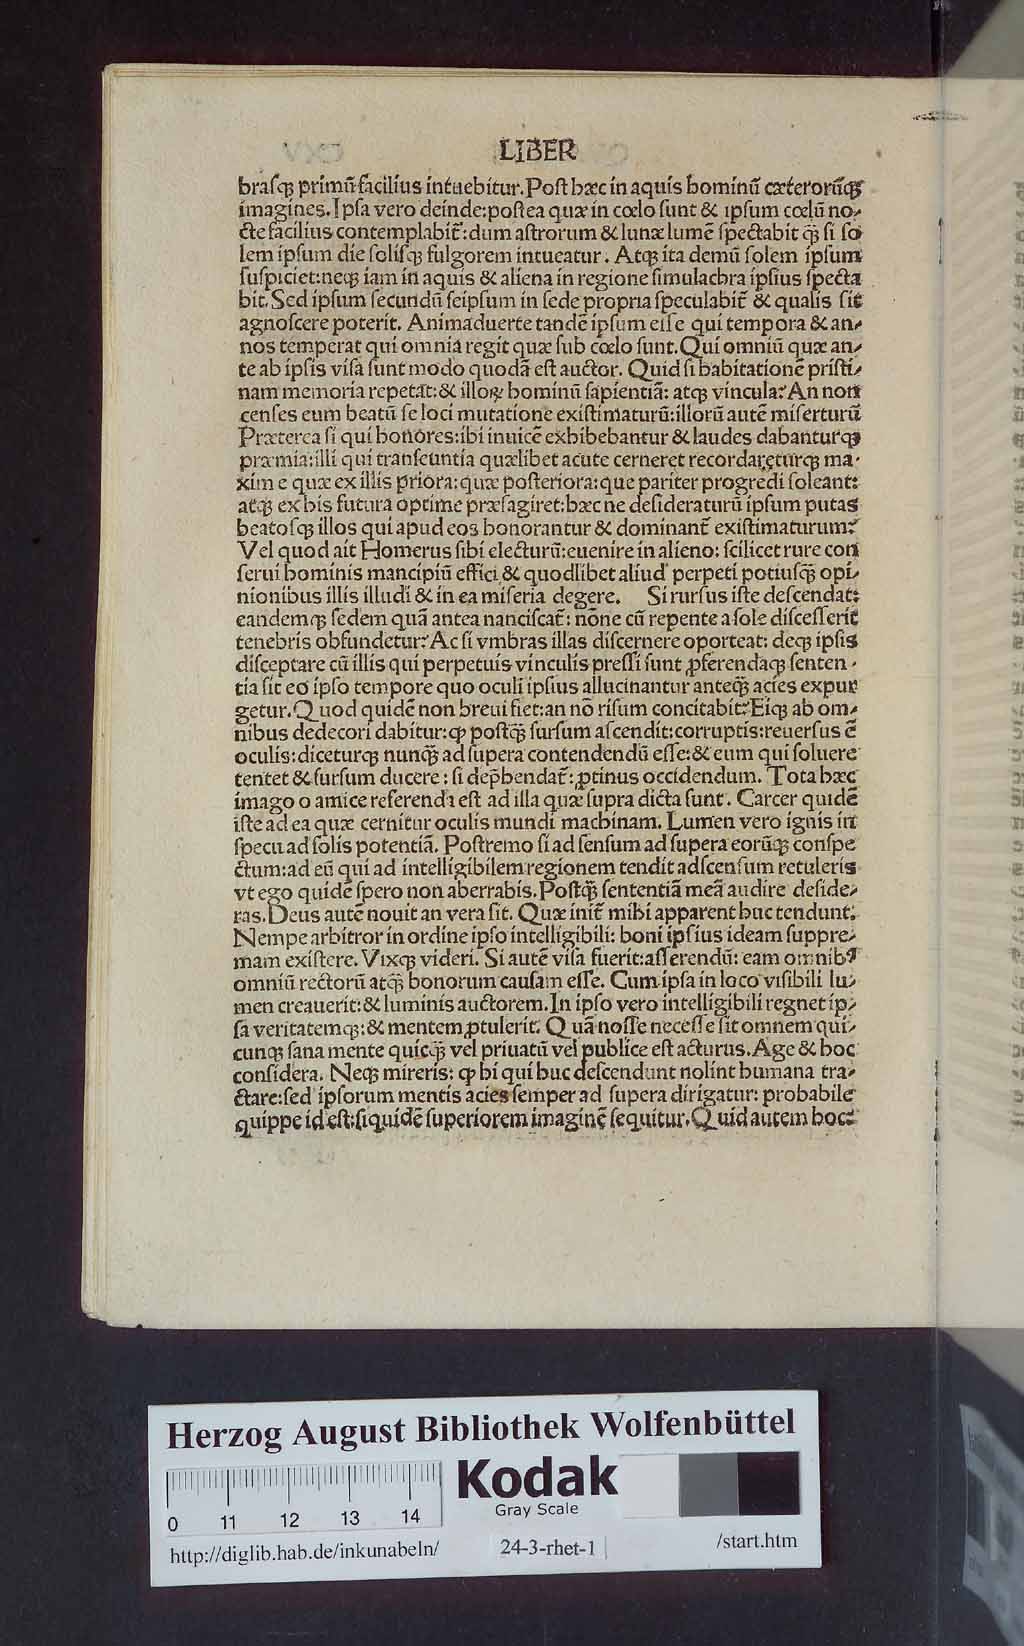 LIBER
braſqꝫ primũ facilius intuebitur. Poſt hæc in aquis hominũ cæterorũqꝫ
imagines. Ipſa vero deinde: poſtea quæ in cœlo ſunt & ipſum cœlũ no-
cte facilius contemplabit᷑: dum aſtrorum & lunæ lumẽ ſpectabit q̃ ſi ſo
lem ipſum die ſoliſqꝫ fulgorem intueatur. Atqꝫ ita demũ ſolem ipſum
ſuſpiciet: neqꝫ iam in aquis & aliena in regione ſimulachra ipſius ſpecta
bit. Sed ipſum ſecundũ ſeipſum in ſede propria ſpeculabit᷑ & qualis ſit
agnoſcere poterit. Animaduerte tandẽ ipſum eſſe qui tempora & an-
nos temperat qui omnia regit quæ ſub cœlo ſunt. Qui omniũ quæ an-
te ab ipſis viſa ſunt modo quodã eſt auctor. Quid ſi habitationẽ priſti-
nam memoria repetat: & illoꝝ hominũ ſapientiã: atqꝫ vincula? An non
cenſes eum beatũ ſe loci mutatione exiſtimaturũ: illorũ autẽ miſerturũ
Præterea ſi qui honores: ibi inuicẽ exhibebantur & laudes dabanturqꝫ
præmia: illi qui tranſeuntia quælibet acute cerneret recordareturqꝫ ma-
xim e quæ ex illis priora: quæ poſteriora: que pariter progredi ſoleant:
atqꝫ ex his futura optime præſagiret: hæc ne deſideraturũ ipſum putas
beatoſqꝫ illos qui apud eos honorantur & dominant᷑ exiſtimaturum?
Vel quod ait Homerus ſibi electurũ: euenire in alieno: ſcilicet rure con
ſerui hominis mancipiũ effici & quodlibet aliud perpeti potiuſq̃ opi-
nionibus illis illudi & in ea miſeria degere. Si rurſus iſte deſcendat:
eandemqꝫ ſedem quã antea nanciſcat᷑: nõne cũ repente a ſole diſceſſerit
tenebris obfundetur? Ac ſi vmbras illas diſcernere oporteat: deqꝫ ipſis
diſceptare cũ illis qui perpetuis vinculis preſſi ſunt ꝓferendaqꝫ ſenten-
tia ſit eo ipſo tempore quo oculi ipſius allucinantur anteq̃ acies expur
getur. Quod quidẽ non breui fiet: an nõ riſum concitabit? Eiqꝫ ab om-
nibus dedecori dabitur: ꝙ poſtq̃ ſurſum aſcendit: corruptis: reuerſus ẽ
oculis: diceturqꝫ nunq̃ ad ſupera contendendũ eſſe: & eum qui ſoluere
tentet & ſurſum ducere: ſi dep̃hendat᷑: ꝓtinus occidendum. Tota hæc
imago o amice referenda eſt ad illa quæ ſupra dicta ſunt. Carcer quidẽ
iſte ad ea quæ cernitur oculis mundi machinam. Lumen vero ignis in
ſpecu ad ſolis potentiã. Poſtremo ſi ad ſenſum ad ſupera eorũqꝫ conſpe
ctum: ad eũ qui ad intelligibilem regionem tendit adſcenſum retuleris
vt ego quidẽ ſpero non aberrabis. Poſtq̃ ſententiã meã audire deſide-
ras. Deus autẽ nouit an vera ſit. Quæ init᷑ mihi apparent huc tendunt:
Nempe arbitror in ordine ipſo intelligibili: boni ipſius ideam ſuppre-
mam exiſtere. Vixqꝫ videri. Si autẽ viſa fuerit: aſſerendũ: eam omnibꝰ
omniũ rectorũ atq̃ bonorum cauſam eſſe. Cum ipſa in loco viſibili lu-
men creauerit: & luminis auctorem. In ipſo vero intelligibili regnet ip-
ſa veritatemqꝫ: & mentem ꝓtulerit. Quã noſſe neceſſe ſit omnem qui-
cunqꝫ ſana mente quicq̃ vel priuatũ vel publice eſt acturus. Age & hoc
conſidera. Neqꝫ mireris: ꝙ hi qui huc deſcendunt nolint humana tra-
ctare: ſed ipſorum mentis acies ſemper ad ſupera dirigatur: probabile
quippe id eſt: ſiquidẽ ſuperiorem imaginẽ ſequitur. Quid autem hoc?
Herzog August Bibliothek Wolfenbüttel
Kodak
Gray Scale
0 11 12 13 14
http://diglib.hab.de/inkunabeln/ 24-3-rhet-1 /start.htm